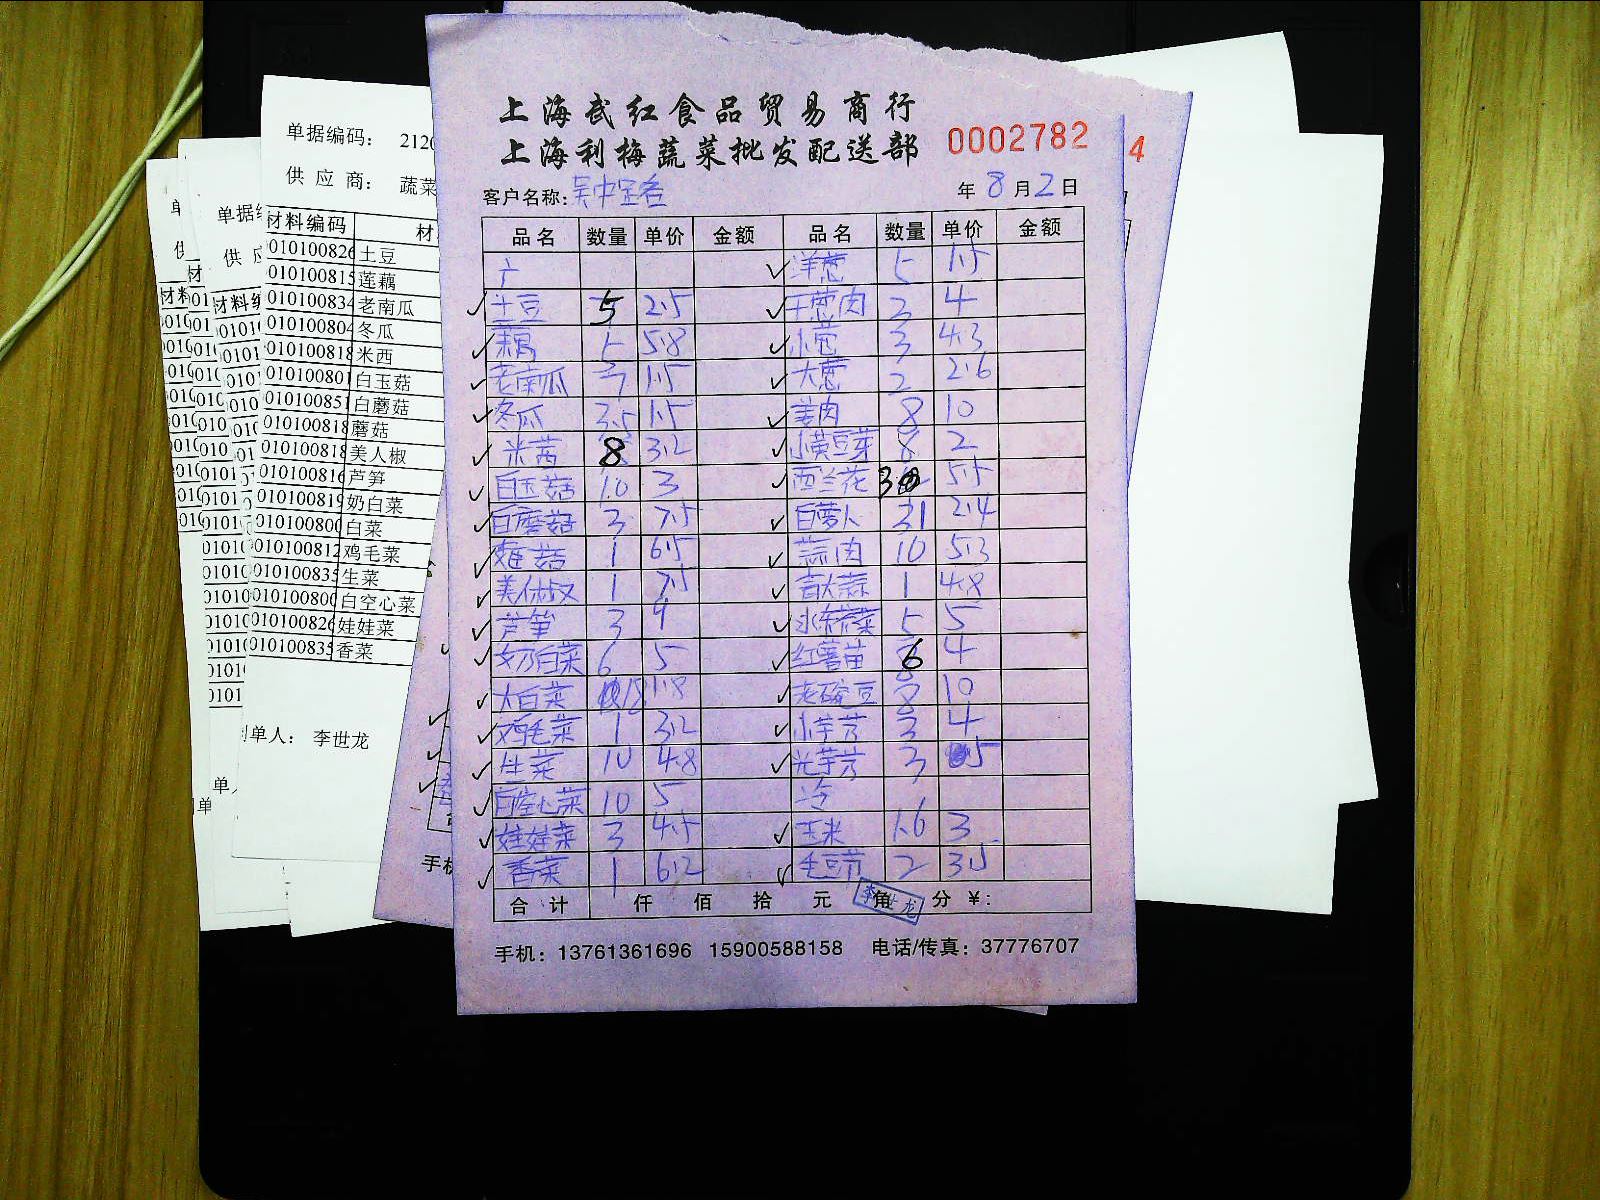 上海武红食品贸易商行
上海利梅蔬菜批发配送部
0002782
4
客户名称: 年 8 月 2 日
品名 数量 单价 金额 品名 数量 单价 金额
洋葱 5 1.5
土豆 5 2.5 干葱肉 2 4
藕 5 5.8 小葱 3 4.3
老南瓜 7 1.5 大葱 2 2.6
冬瓜 3.5 1.5 姜肉 8 10
米茜 8 3.2 小黄豆芽 8 2
白玉菇 10 3 西兰花 5.5
白磨菇 3 7.5 白萝卜 31 2.4
菇 1 6.5 蒜肉 10 5.3
美人椒 1 7.5 青大蒜 1 4.8
芦笋 3 9 5 5
奶白菜 6 5 红薯苗 6 4
大白菜 1.8 老碗豆 8 10
鸡毛菜 1 3.2 小芋艿 3 4
生菜 10 4.8 光芋艿 3
白空心菜 10 5 冷
娃娃菜 3 4.5 玉米 1.6 3
香菜 1 6.2 毛豆节 2 3.5
合计 仟 佰 拾 元 角 分 ¥:
李世龙
手机: 13761361696 15900588158 电话/传真: 37776707
单据编码: 2120
供应商: 蔬菜
材料编码 材
010100826 土豆
010100815 莲藕
010100834 老南瓜
010100804 冬瓜
010100818 米西
010100801 白玉菇
010100851 白蘑菇
010100818 蘑菇
010100818 美人椒
010100816 芦笋
010100819 奶白菜
010100800 白菜
010100812 鸡毛菜
010100835 生菜
010100800 白空心菜
010100826 娃娃菜
010100835 香菜
制单人: 李世龙
单据编
供应
材料编
手机